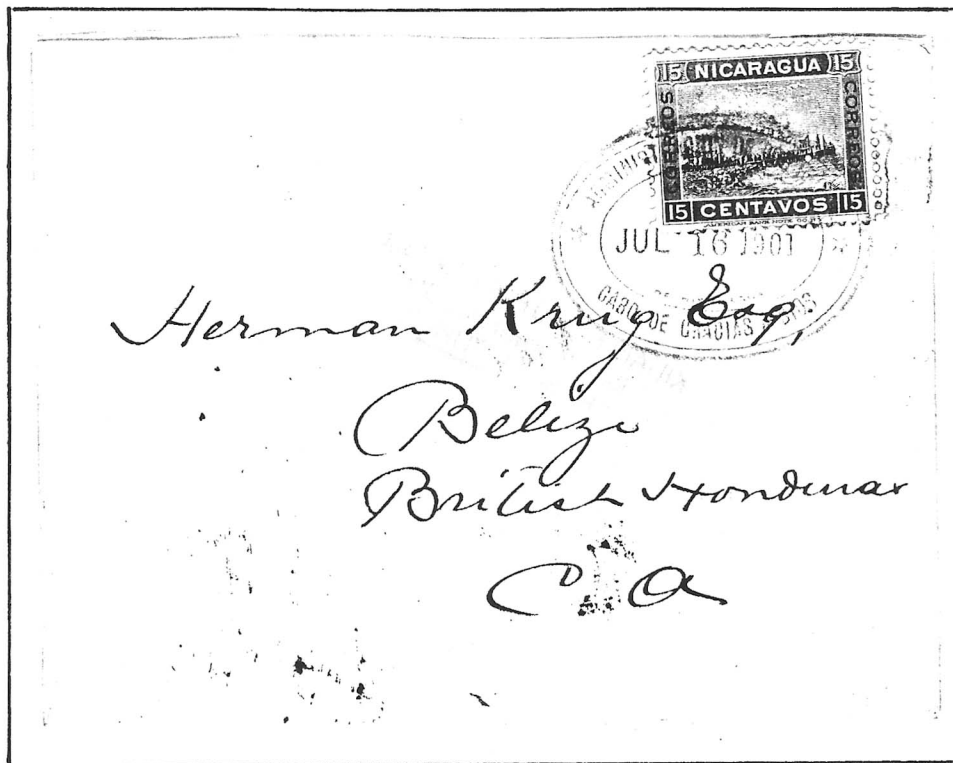 15 NICARAGUA 15
CORREOS
CORREOS
15 CENTAVOS 15
AMERICAN BANK NOTE CO.
JUL 16 1901
CABO DE GRACIAS A DIOS
Herman Krug Esq,
Belize
British Honduras
C A